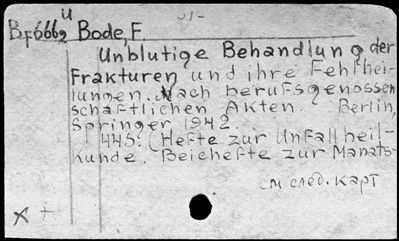 и
Bf6662 Bode, F.
Unblutige Behandlung der
Frakturen und ihre Fehlhei-
lungen. Nach berufsgenossen
schaftlichen Akten. Berlin,
Springer 1942.
44S. (Hefte zur Unfallheil-
kunde. Beihefte zur Monats-
см след. карт